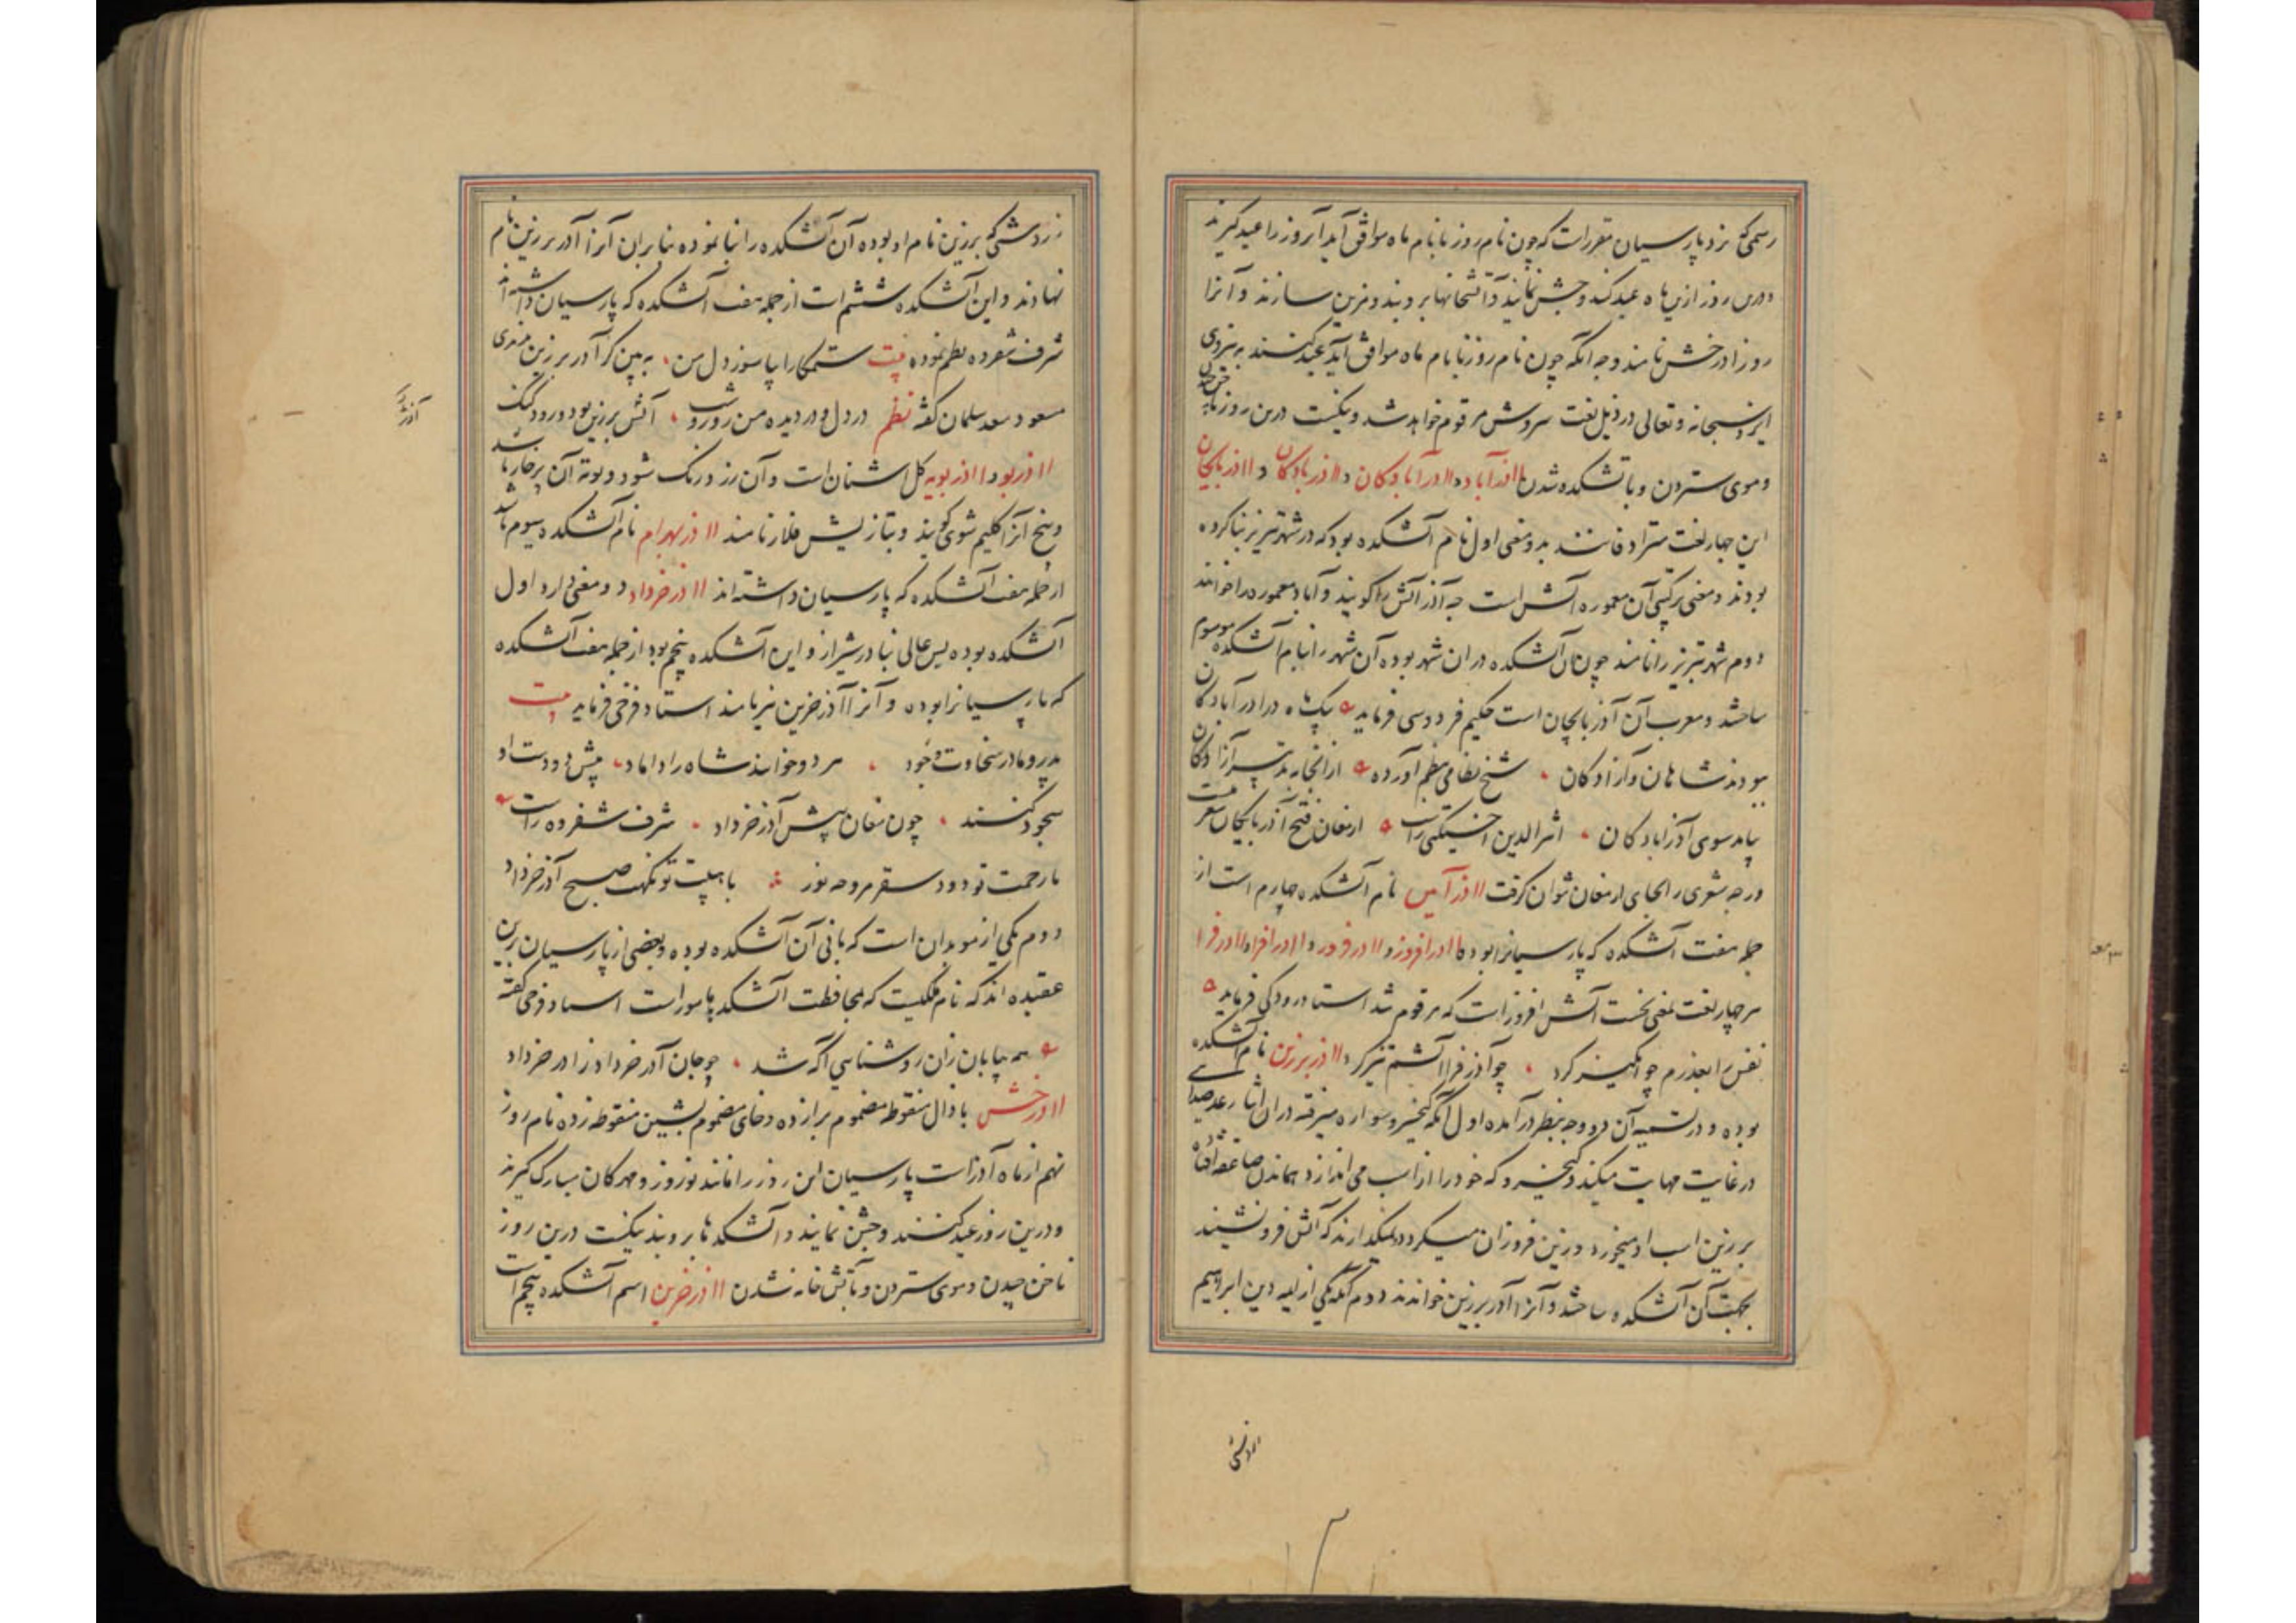 رسمی که نزد پارسیان مقررات که چون نام روز با نام ماه موافق آید آنروز را عید گیرند
درین روز ازین ماه عید کنند و جشن نمایند و آتشخانها بروبند و مزین سازند و آنرا
روز آذر خش نامند وجه آنکه چون نام روز با نام ماه موافق آید عید کنند به نیروی
ایزد سبحانه و تعالی در ذیل لغت سروش مرقوم خواهد شد و نیکست درین روز ناخن چیدن
و موی ستردن و باتشکده شدن آذرآباد و آذرآبادکان و آذربادکان و آذربایجان
این چهار لغت مترادفانند بدو معنی اول نام آتشکده بود که در شهر تبریز بنا کرده
بودند و معنی ترکیبی آن معموره آتش است چه آذر آتش را کویند و آباد معموره را خوانند
دوم شهر تبریز را نامند چون آن آتشکده در ان شهر بوده آن شهر را بنام آتشکده موسوم
ساختند و معرب آن آذربایجان است حکیم فردوسی فرماید یک ماه در آذرآبادکان
ببودند شاهان و آزادکان شیخ نظامی نظم آورده از انجا بتدبیر آزادکان
بیامد سوی آذرابادکان اثیرالدین اخسیکتی راست ارمغان فتح آذربایجان
در چه شعری را بجای ارمغان توان کرفت آذر آیین نام آتشکده چهارم است از
جمله هفت آتشکده که پارسیانرا بوده آذرافروز و آذرفروز و آذرافزا و آذرفزا
هر چهار لغت بمعنی نخست آتش افروز است که مرقوم شد استاد رودکی فرماید
نفس را بعذرم چو انگیز کرد چو آذر فزا آتشم تیز کرد آذر برزین نام آتشکده
بوده و در تسمیه آن دو وجه بنظر درآمده اول آنکه کیخسرو سواره میرفته در ان اثنا رعد صدای
در غایت مهابت میکند و کیخسرو که خود را از اسب می اندازد هماندم صاعقه افتاده
بر زین اسب او میخورد و زین فروزان میکردد نمیکذارند که آتش فرو نشیند
بجهت آن آتشکده ساختند و آنرا آذر برزین خواندند دوم آنکه یکی از ایمه دین ابراهیم
زردشتی که برزین نام او بوده آن آتشکده را بنا نموده بنابران آنرا آذر برزین نام
نهادند و این آتشکده ششم است از جمله هفت آتشکده که پارسیان داشته اند
شرف شفروه نظم نموده بیت ستمکارا بپا سوز دل من به بین کر آذر برزین ندیدی
مسعود سعد سلمان کفته نظم در دل و در دیده من روز و شب آتش برزین بود و رود کنک
آذربو و آذربویه کل اشنان است و آن زرد رنک شود و بوته آن پرخار باشد
و بیخ آنرا کلیم شوی کویند و بتازیش فلار نامند آذر بهرام نام آتشکده سیوم باشد
از جمله هفت آتشکده که پارسیان داشته اند آذر خرداد دو معنی دارد اول
آتشکده بوده بس عالی بنا در شیراز و این آتشکده پنجم بود از جمله هفت آتشکده
که پارسیانرا بوده و آنرا آذر خرین نیز نامند استاد فرخی فرماید بیت
پدر و مادر سخاوت وجود هر دو خوانند شاه را داماد پیش دو دست او
سجود کنند چون مغان پیش آذر خرداد شرف شفروه راست
با رحمت تو دود سقر مروحه نور با هیبت تو نکهت صبح آذر خرداد
دوم یکی از موبدان است که بانی آن آتشکده بوده و بعضی از پارسیان برین
عقیده اند که نام ملکیست که بمحافظت آتشکدها مور است استاد فرخی کفته
همه بیابان زان روشنایی آکه شد چو جان آذر خرداد ز آذر خرداد
آذر خش با ذال منقوطه مضموم برا زده و خای مضموم بشین منقوطه زده نام روز
نهم از ماه آذر است پارسیان این روز را مانند نوروز و مهرکان مبارک کیرند
و درین روز عید کنند و جشن نمایند و آتشکدها بروبند نیکست درین روز
ناخن چیدن و موی ستردن و بآتش خانه شدن آذر خرین اسم آتشکده پنجم است